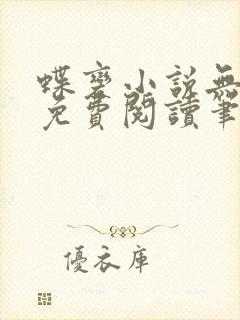 蝶變小說無
免費閱讀筆
優衣庫